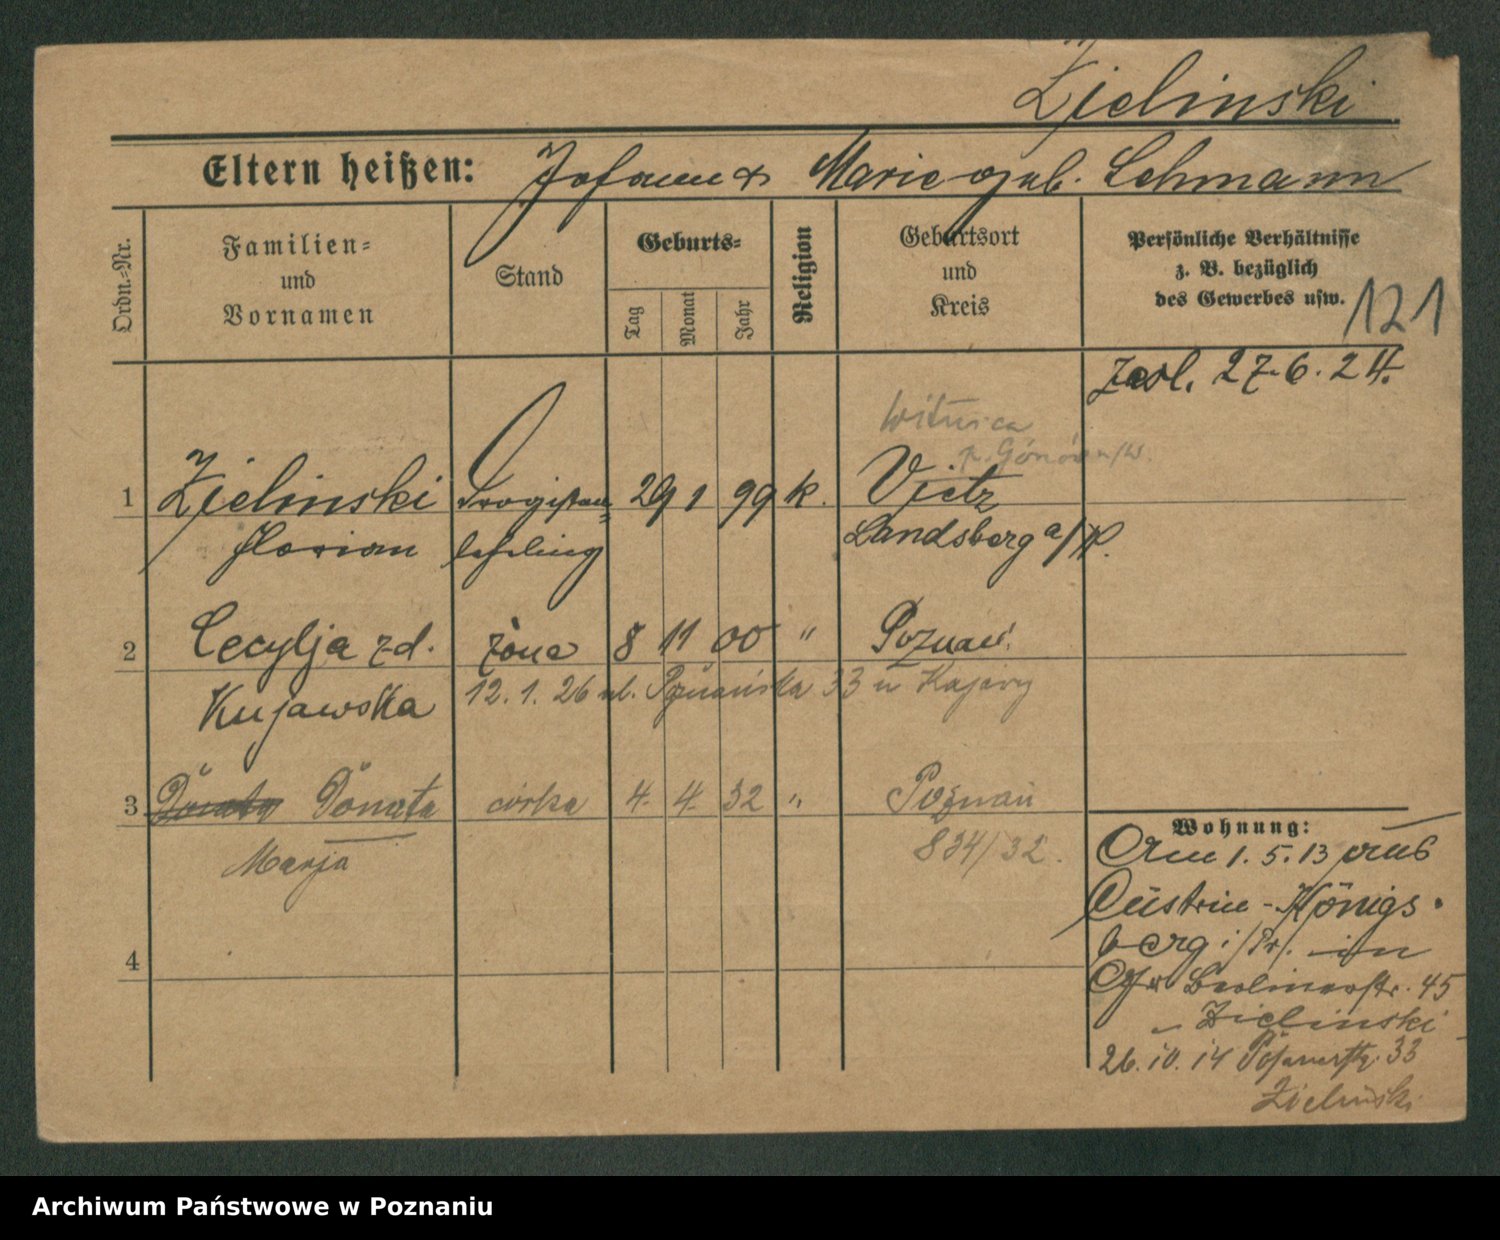 Zielinski
Eltern heißen: Johann & Marie geb. Lehmann
Ordn.-Nr.
Familien-
und
Vornamen
Stand
Geburts-
Tag
Monat
Jahr
Religion
Geburtsort
und
Kreis
Persönliche Verhältnisse
z. B. bezüglich
des Gewerbes usw.
121
zasl. 27.6.24.
Witnica
p. Gónów n/W.
1 Zielinski Drogisten- 29 1 99 k. Vietz
Florian lehrling Landsberg a/W.
2 Cecylja zd. żona 8 11 00 " Poznań
Kujawska 12.1.26 ul. Poznańska 33 u Kajary
3 Donata Donata córka 4. 4. 32 " Poznań
Marja 834/32.
4
Wohnung:
Am 1.5.13 aus
Cüstrin-Königs-
berg i/Pr. in
Berlinerstr. 45
– Zielinski
26.10.14 Posenerstr. 33
Zielinski